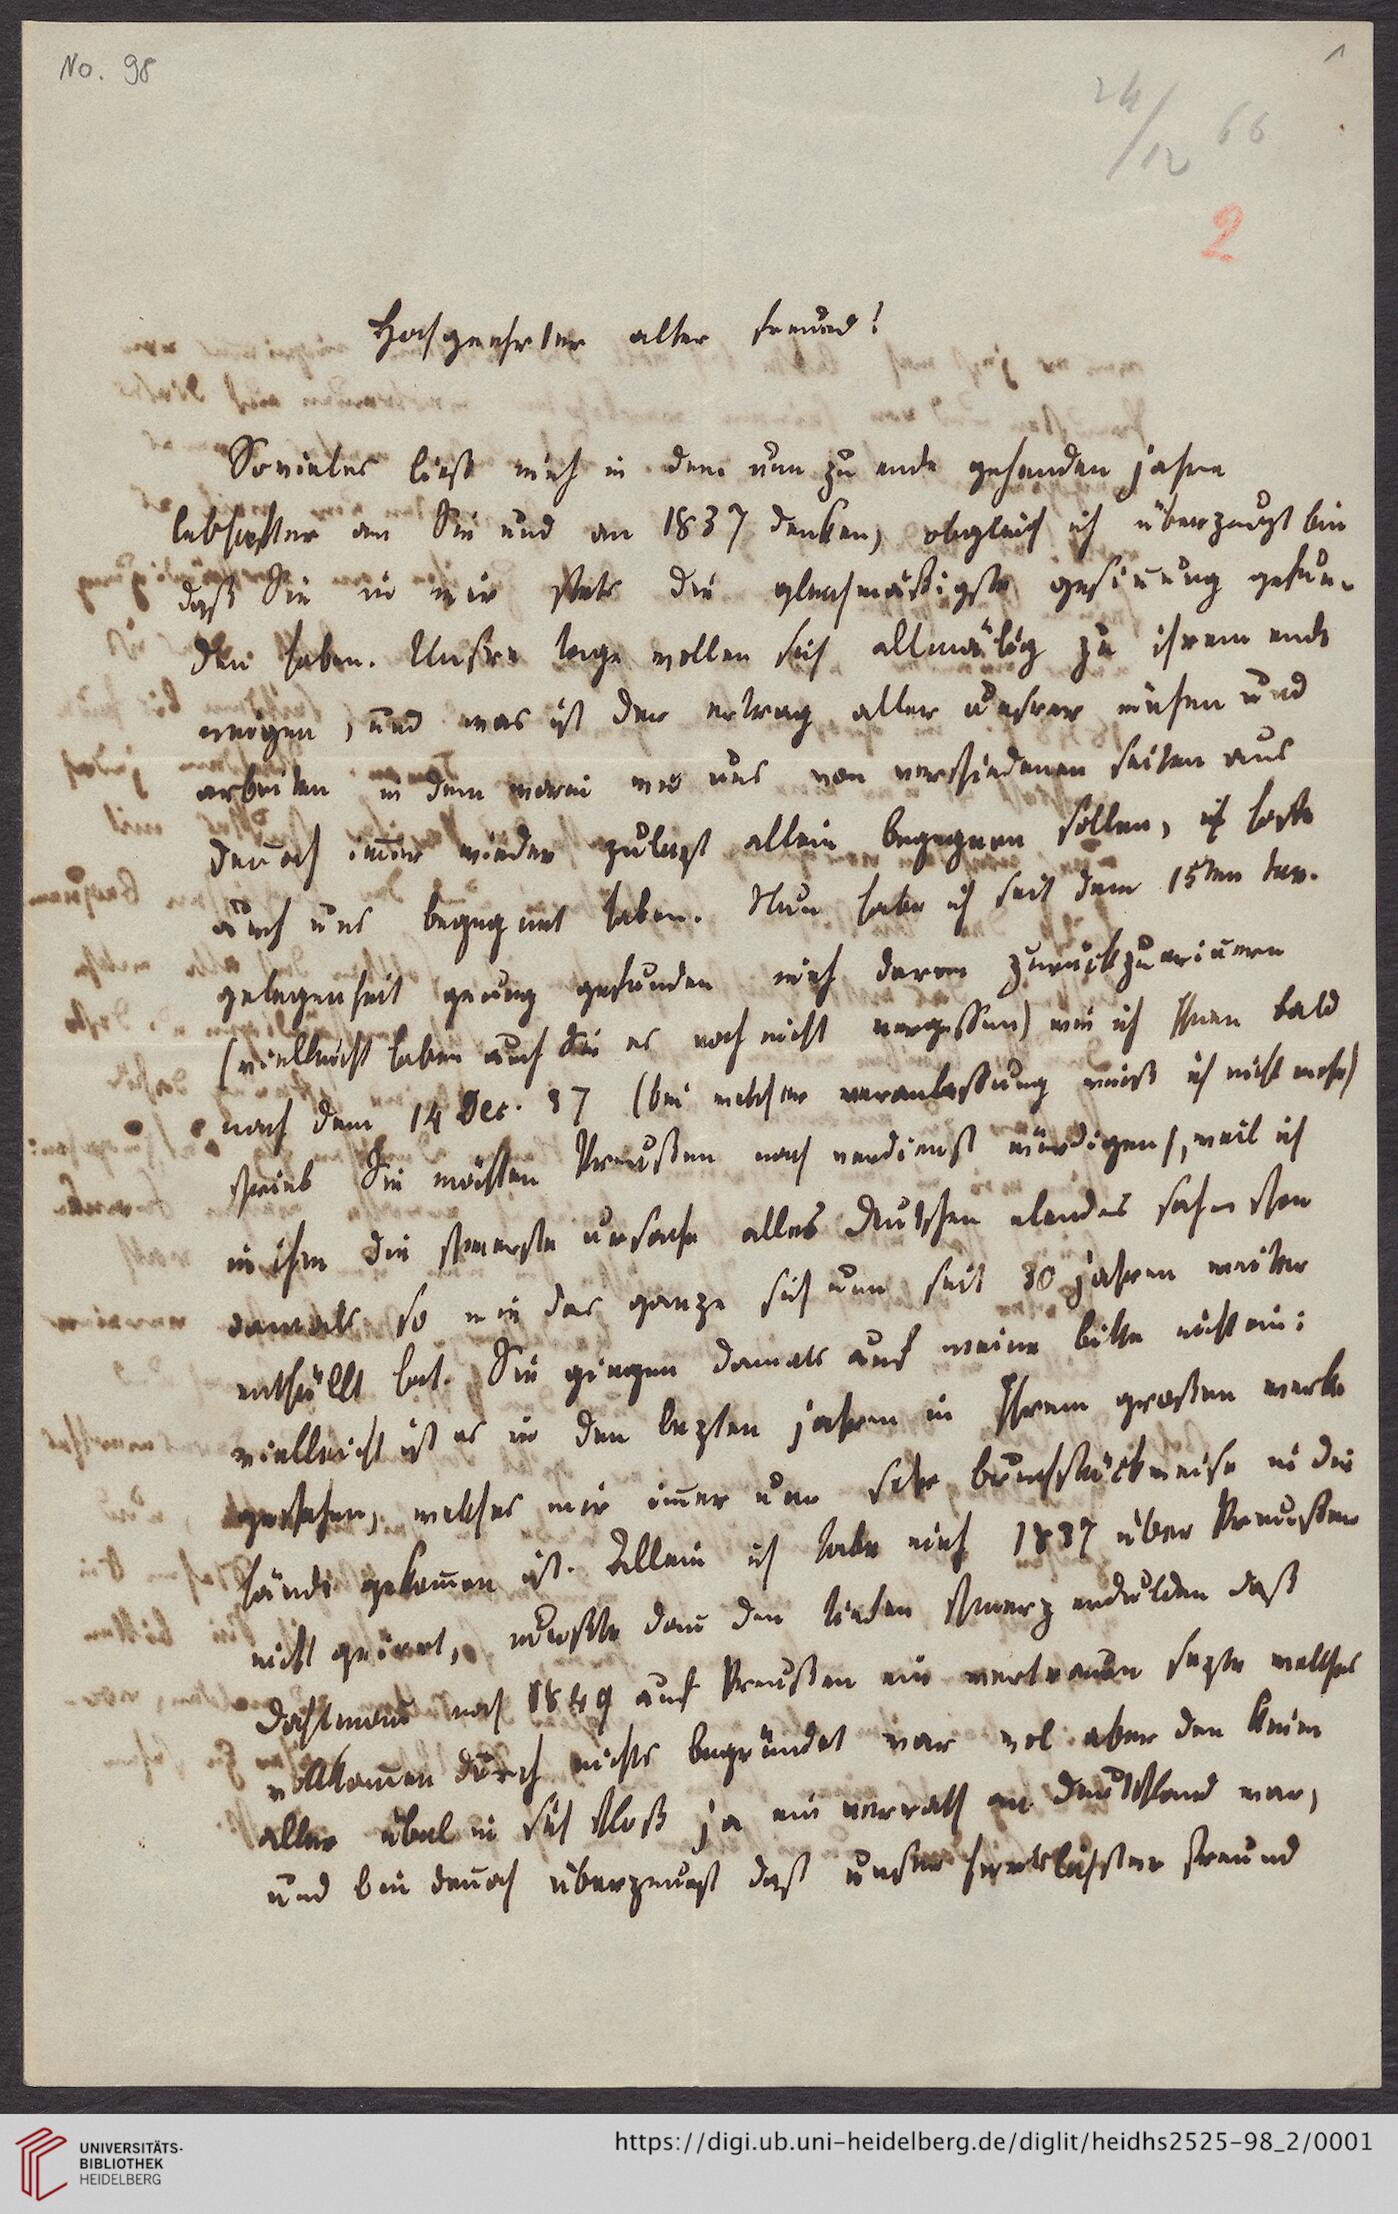 No. 98
1
24/12 66
2
Hochgeehrter alter freund!
Sovieles ließ mich in dem nun zu ende gehenden jahre
lebhafter an Sie und an 1837 denken, obgleich ich überzeugt bin
daß Sie in mir stets die gleichmäßigste gesinnung gefun-
den haben. Unsre tage wollen sich allmälig zu ihrem ende
neigen, und was ist der ertrag aller unsrer mühen und
arbeiten in dem worin wir uns von verschiedenen seiten aus
dennoch immer wieder zulezt allein begegnen sollen, ich hoffe
auch uns begegnet haben. Nun habe ich seit dem 15ten
gelegenheit genug gefunden mich daran zurückzuerinnern
(vielleicht haben auch Sie es noch nicht vergessen) wie ich Ihnen bald
nach dem 14 Dec. 37 (bei welcher veranlassung weiß ich nicht mehr)
schrieb Sie möchten Preußen nach verdienst würdigen, weil ich
in ihm die schwerste ursache alles Deutschen elendes sah schon
damals so wie das ganze sich nun seit 30 jahren weiter
enthüllt hat. Sie gingen damals auf meine bitte nicht ein:
vielleicht ist es in den lezten jahren in Ihrem großen werke
geschehen, welches mir immer nur sehr bruchstückweise in die
hände gekommen ist. Allein ich habe mich 1837 über Preußen
nicht geirrt, mußte dann den tiefen schmerz erdulden daß
Dahlmann noch 1849 auf Preußen ein vertrauen sezte welches
vollkommen durch nichts begründet war wol aber den keim
aller übel in sich schloß ja ein verrath an Deutschland war,
und bin dennoch überzeugt daß unser freund
UNIVERSITÄTS-
BIBLIOTHEK
HEIDELBERG
https://digi.ub.uni-heidelberg.de/diglit/heidhs2525-98_2/0001